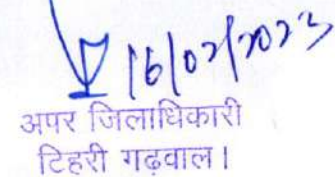 16/02/2023
अपर जिलाधिकारी
टिहरी गढ़वाल।